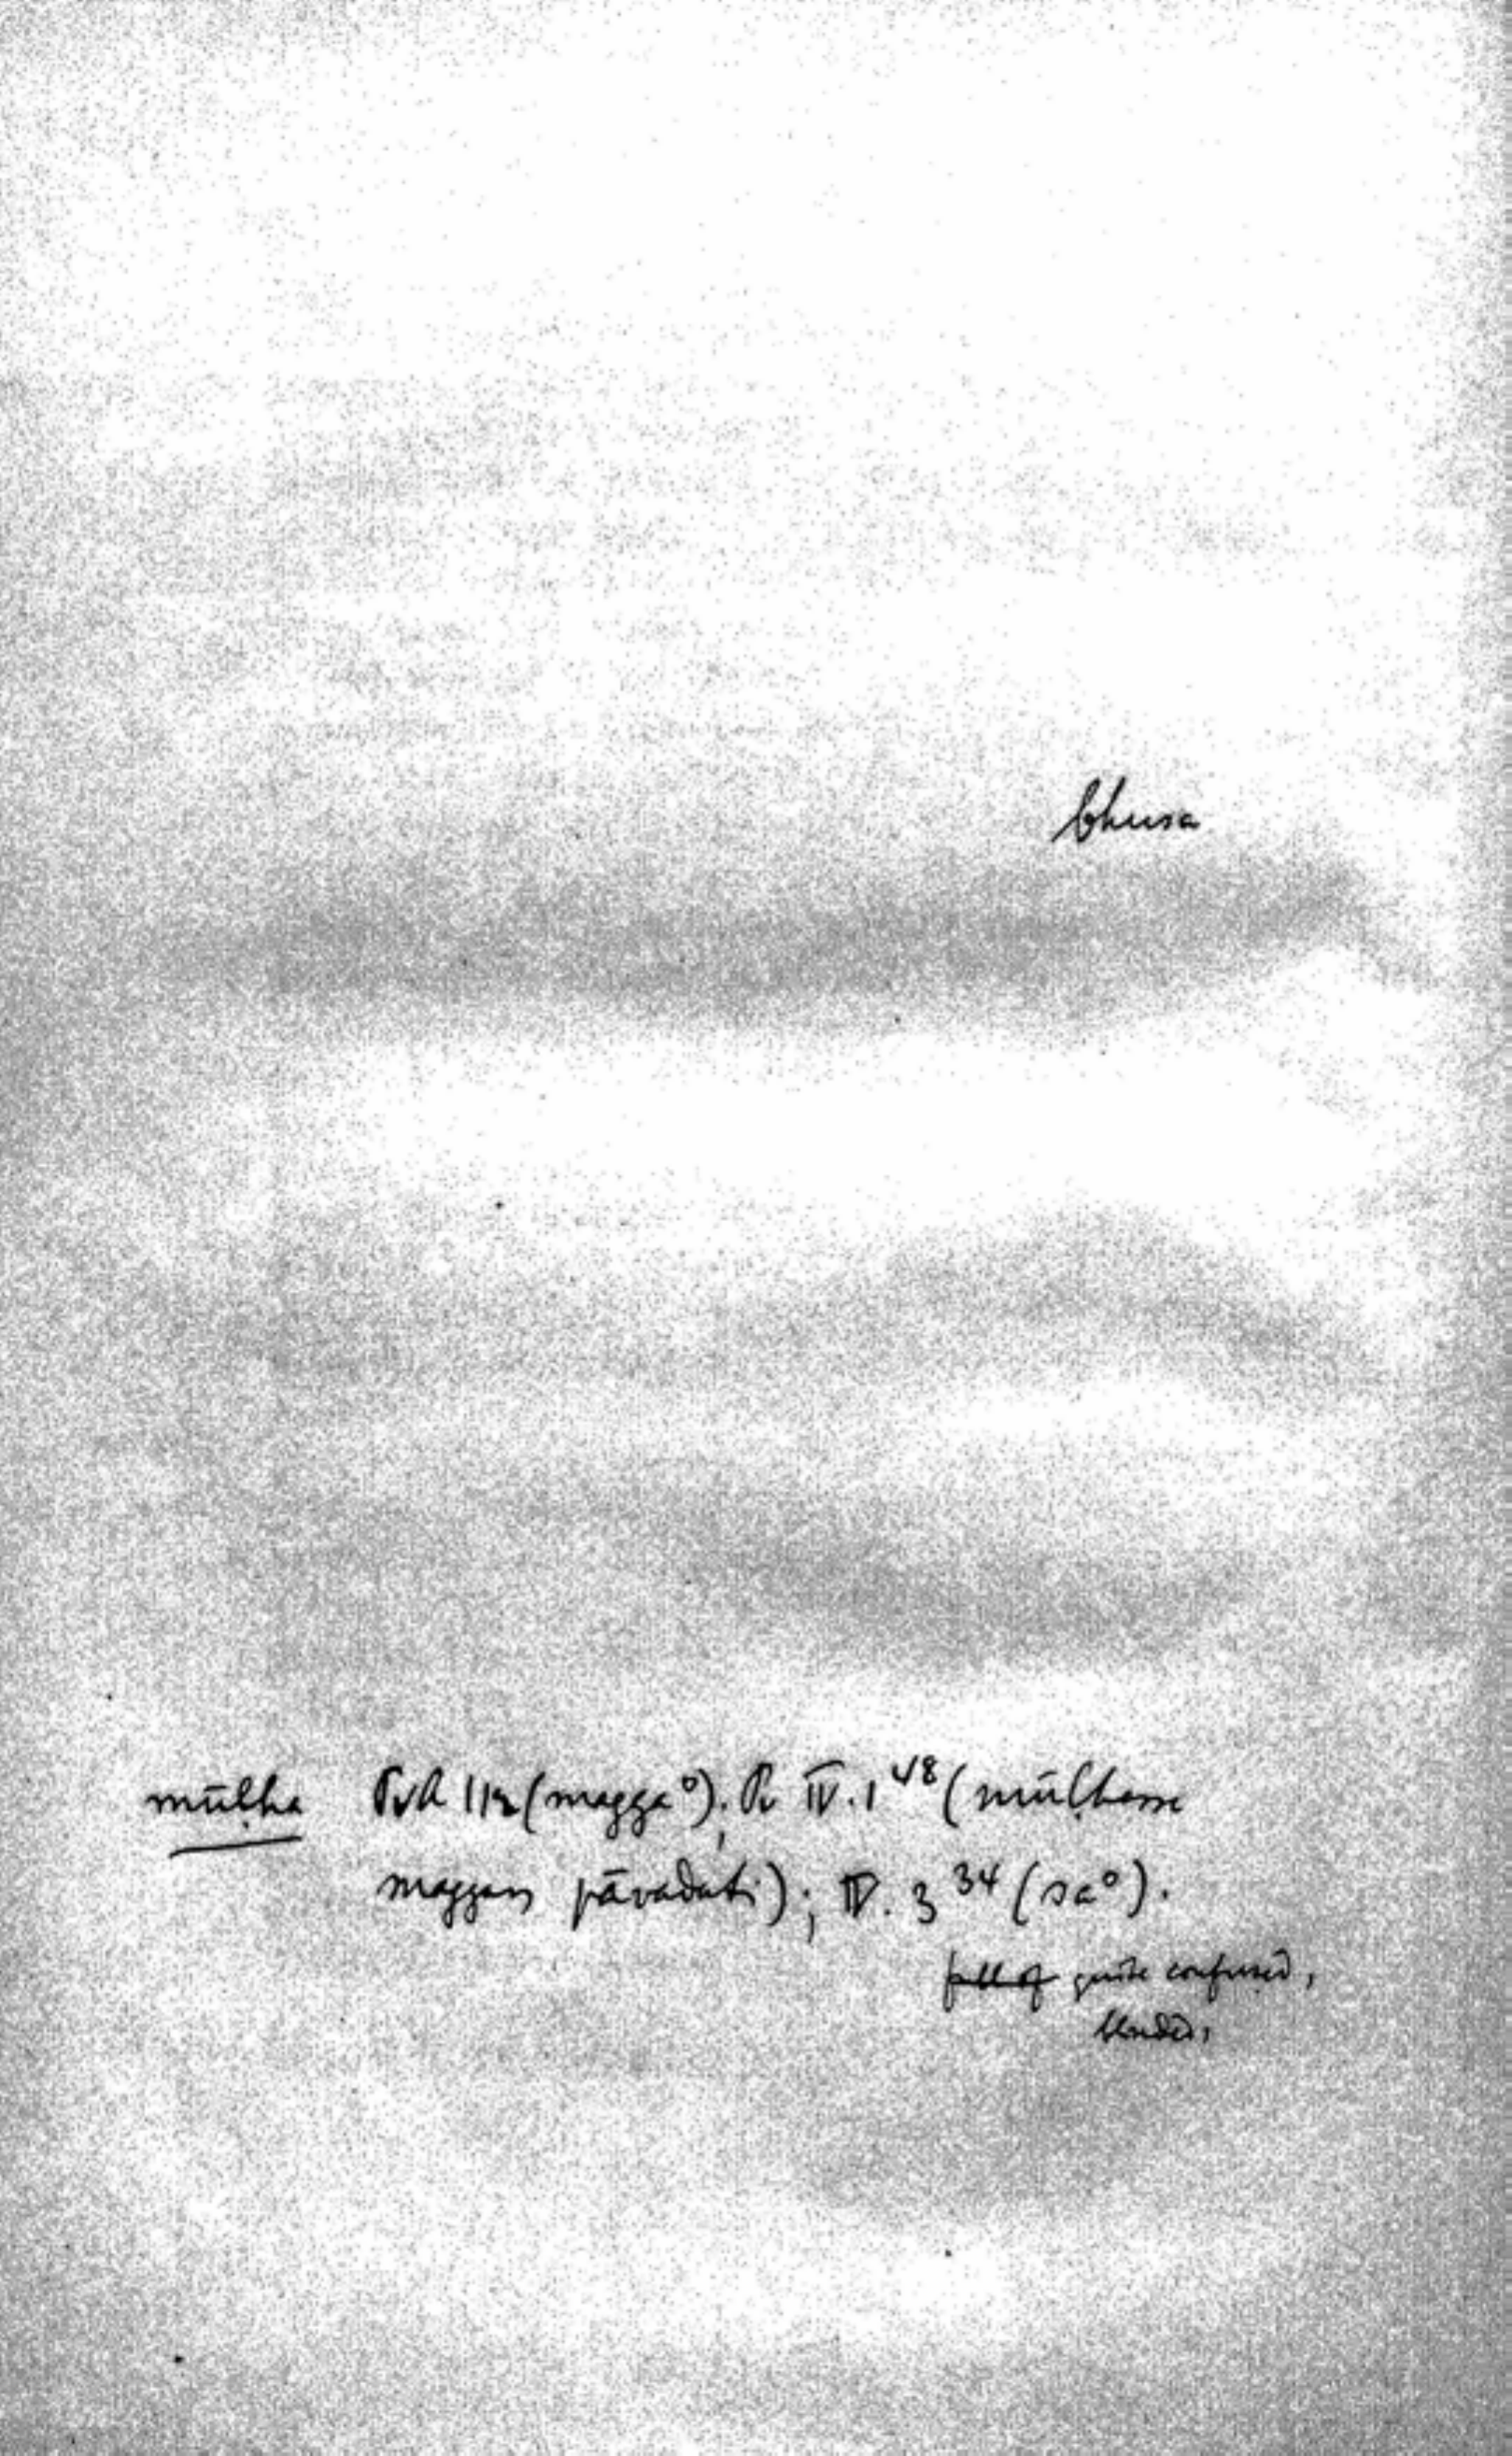 bhusa
mūḷha PvA 112 (magga°); Pv IV.1⁴⁸ (mūḷhassa
maggaṃ pāvadati); IV. 3³⁴ (sa°).
full of quite confused,
blinded,